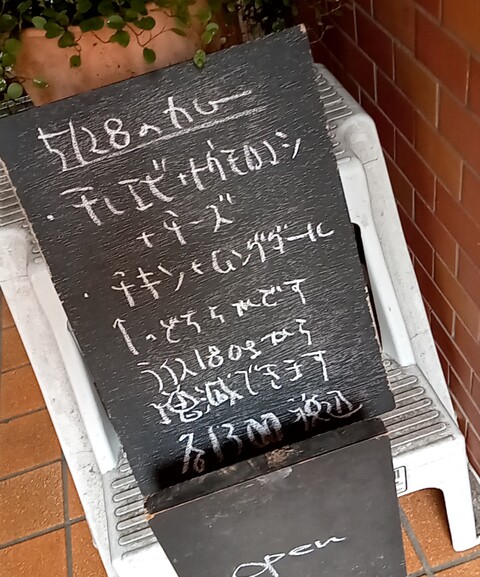 5/28のカレー
・干しエビ+トウモロコシ
+チーズ
・チキン+ムングダール
↑のどちらかです
ライス180gから
増減できます
各1300 税込
open